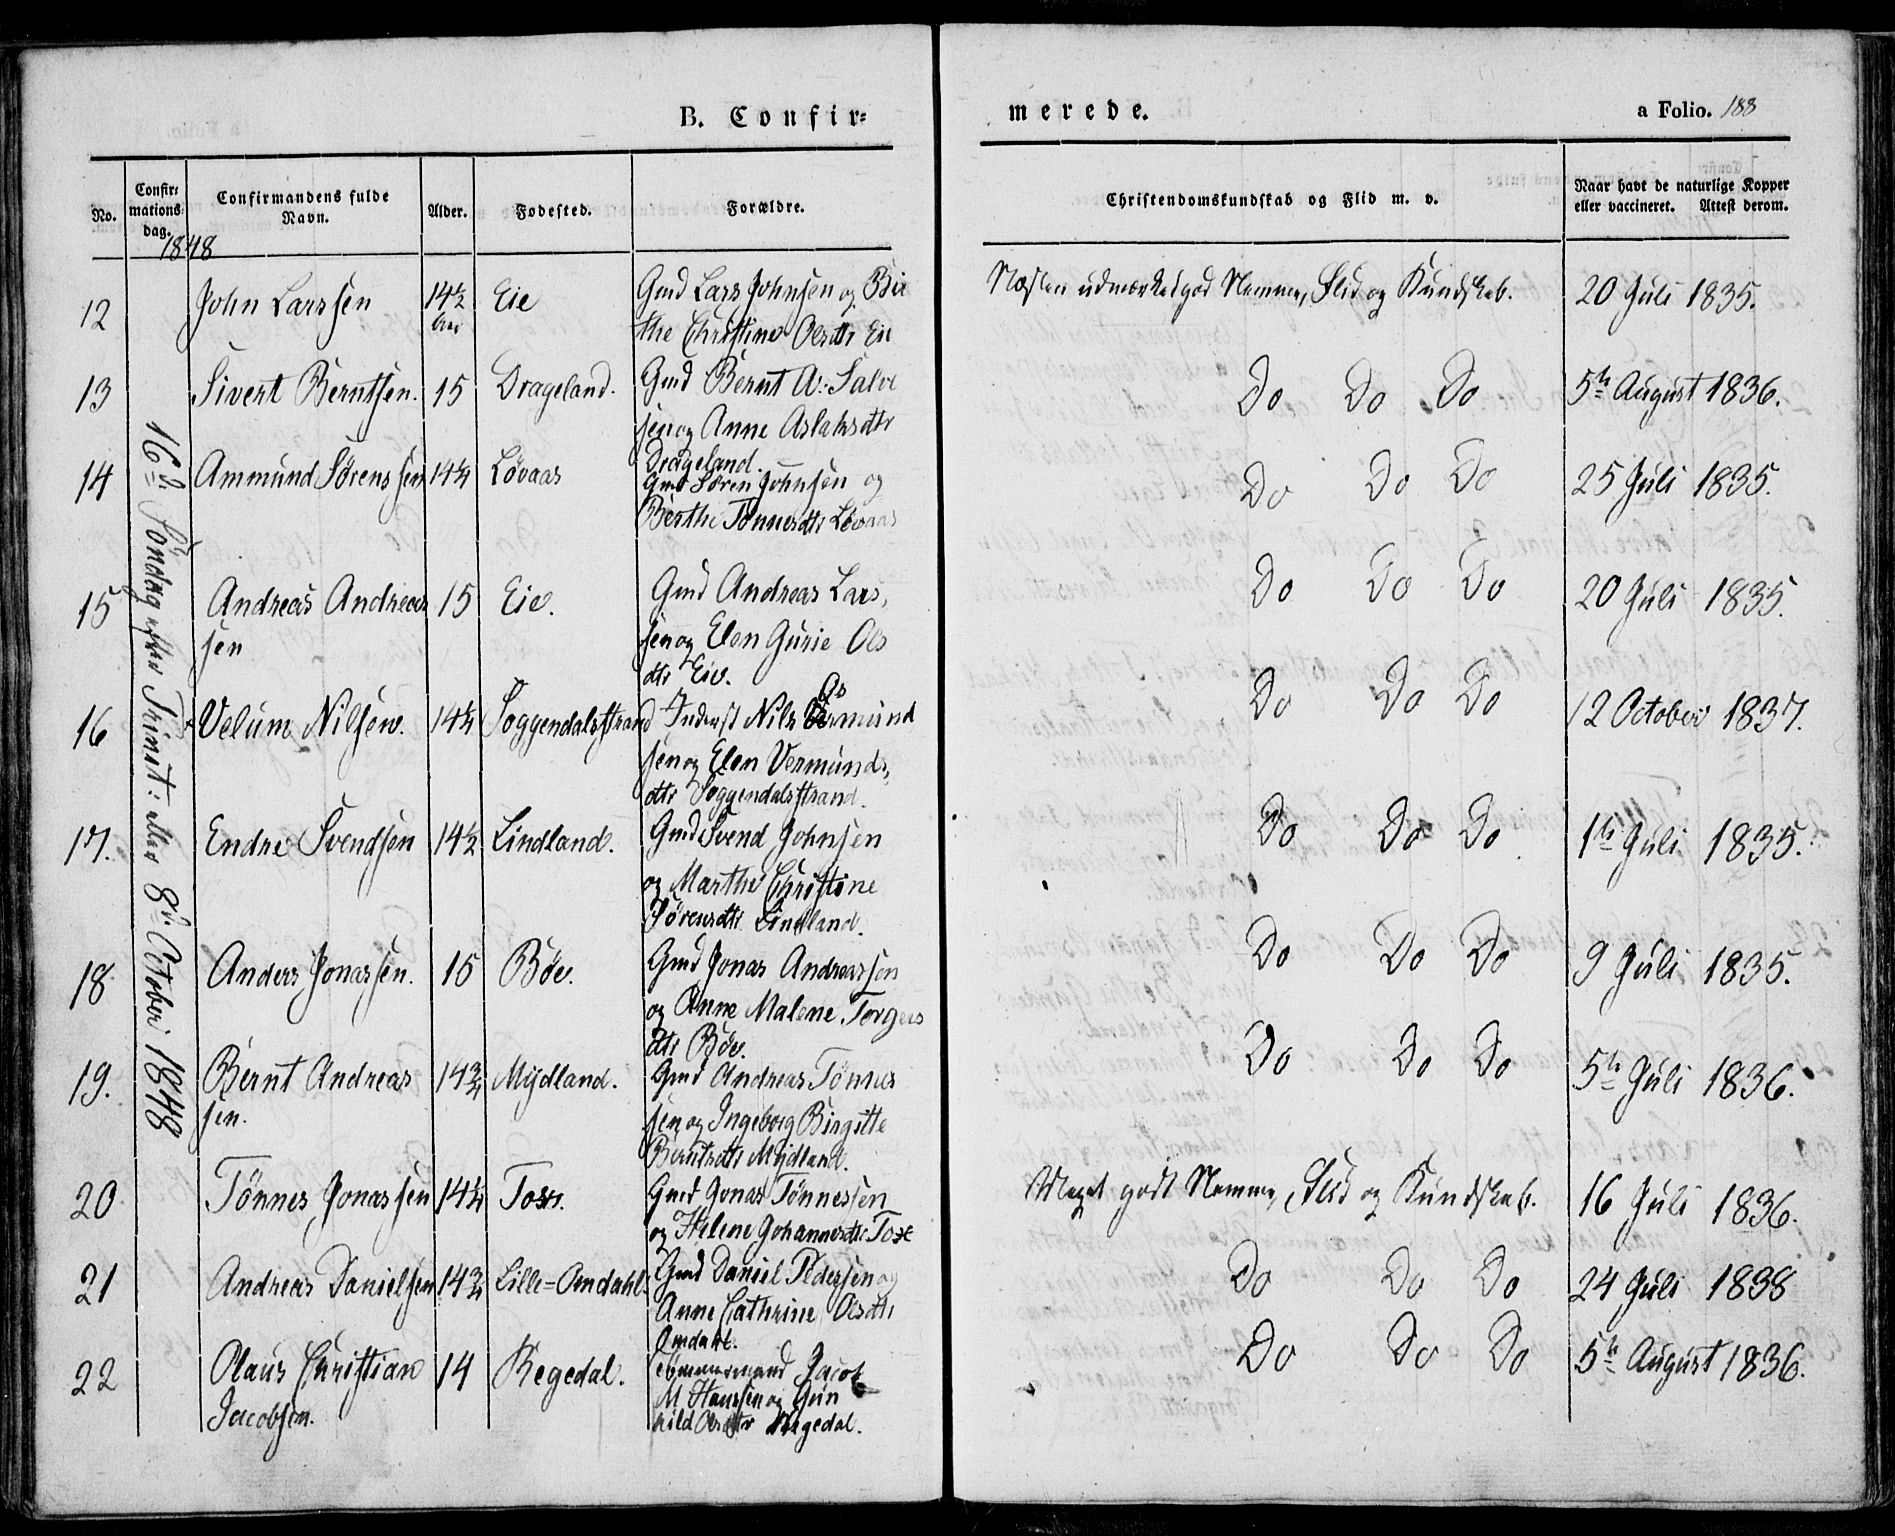 B. Confir=
merede.
a Folio. 183
No.
Confir=
mations
dag.
Confirmandens fulde
Navn.
Alder.
Fødested.
Forældre.
Christendomskundskab og Flid m. v.
Naar havt de naturlige Kopper
eller vaccineret. Attest derom.
1848
16de Söndag efter Trinit: eller 8de October 1848
12 John Larssen 14½ Eie Gmd Lars Johnsen og Bir
Aar the Christine Olsdtr Eie
Næsten udmærket god Nemme, Flid og Kundskab. 20 Juli 1835.
13 Sivert Berntsen. 15 Drageland. Gmd Bernt A: Salve
sen og Anne Aslaksdtr
Drageland.
Do Do Do 5te August 1836.
14 Ammund Sørenssen 14¼ Løvaas Gmd Søren Johnsen og
Berthe Tønnesdtr Løvaas
Do Do Do 25 Juli 1835.
15 Andreas Andreas 15 Eie. Gmd Andreas Lars,
sen sen og Elen Gurie Ols
dtr Eie.
Do Do Do 20 Juli 1835.
16 Velum Nilsen. 14¼ Soggendalsstrand Inderst Nils Osmund
sen og Elen Vermunds,
dtr Soggendalsstrand.
Do Do Do 12 October 1837.
17. Endre Svendsen 14½ Lindland. Gmd Svend Johnsen
og Marthe Christine
Sørensdtr Lindland.
Do Do Do 1te Juli 1835.
18 Anders Jonassen. 15 Bøe. Gmd Jonas Andreassen
og Anne Malene Torgers
dtr Bøe.
Do Do Do 9 Juli 1835.
19. Bernt Andreas 14¾ Mydland. Gmd Andreas Tönnes
sen. sen og Ingeborg Birgitte
Berntsdtr Mydland.
Do Do Do 5te Juli 1836.
20 Tönnes Jonassen 14¼ Toxe. Gmd Jonas Tönnessen
og Helene Johannesdtr Toxe
Meget godt Nemme, Flid og Kundskab. 16 Juli 1836.
21 Andreas Danielsen 14¾ Lille=Omdahl Gmd Daniel Pedersen og
Anne Cathrine Olsdtr
Omdahl.
Do Do Do 24 Juli 1838
22 Olaus Christian 14 Regedal. Tömmermand Jacob
Jacobsen. M. Hanssen og Gun
hild Olsdtr Regedal.
Do Do Do 5te August 1836.